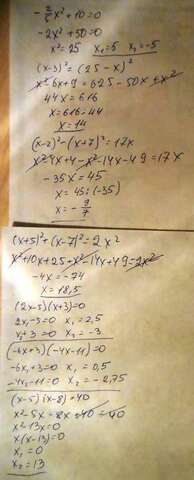 -2/5x²+10=0
-2x²+50=0
x²=25 x₁=5 x₂=-5
(x-3)²=(25-x)²
x²-6x+9=625-50x+x²
44x=616
x=616:44
x=14
(x-2)²-(x+7)²=17x
x²-4x+4-x²-14x-49=17x
-35x=45
x=45:(-35)
x=-9/7
(x+5)²+(x-7)²=2x²
x²+10x+25+x²-14x+49=2x²
-4x=-74
x=18,5
(2x-5)(x+3)=0
2x-5=0 x₁=2,5
x+3=0 x₂=-3
(-6x+3)(-4x-11)=0
-6x+3=0 x₁=0,5
-4x-11=0 x₂=-2,75
(x-5)(x-8)=40
x²-5x-8x+40=40
x²-13x=0
x(x-13)=0
x₁=0
x₂=13